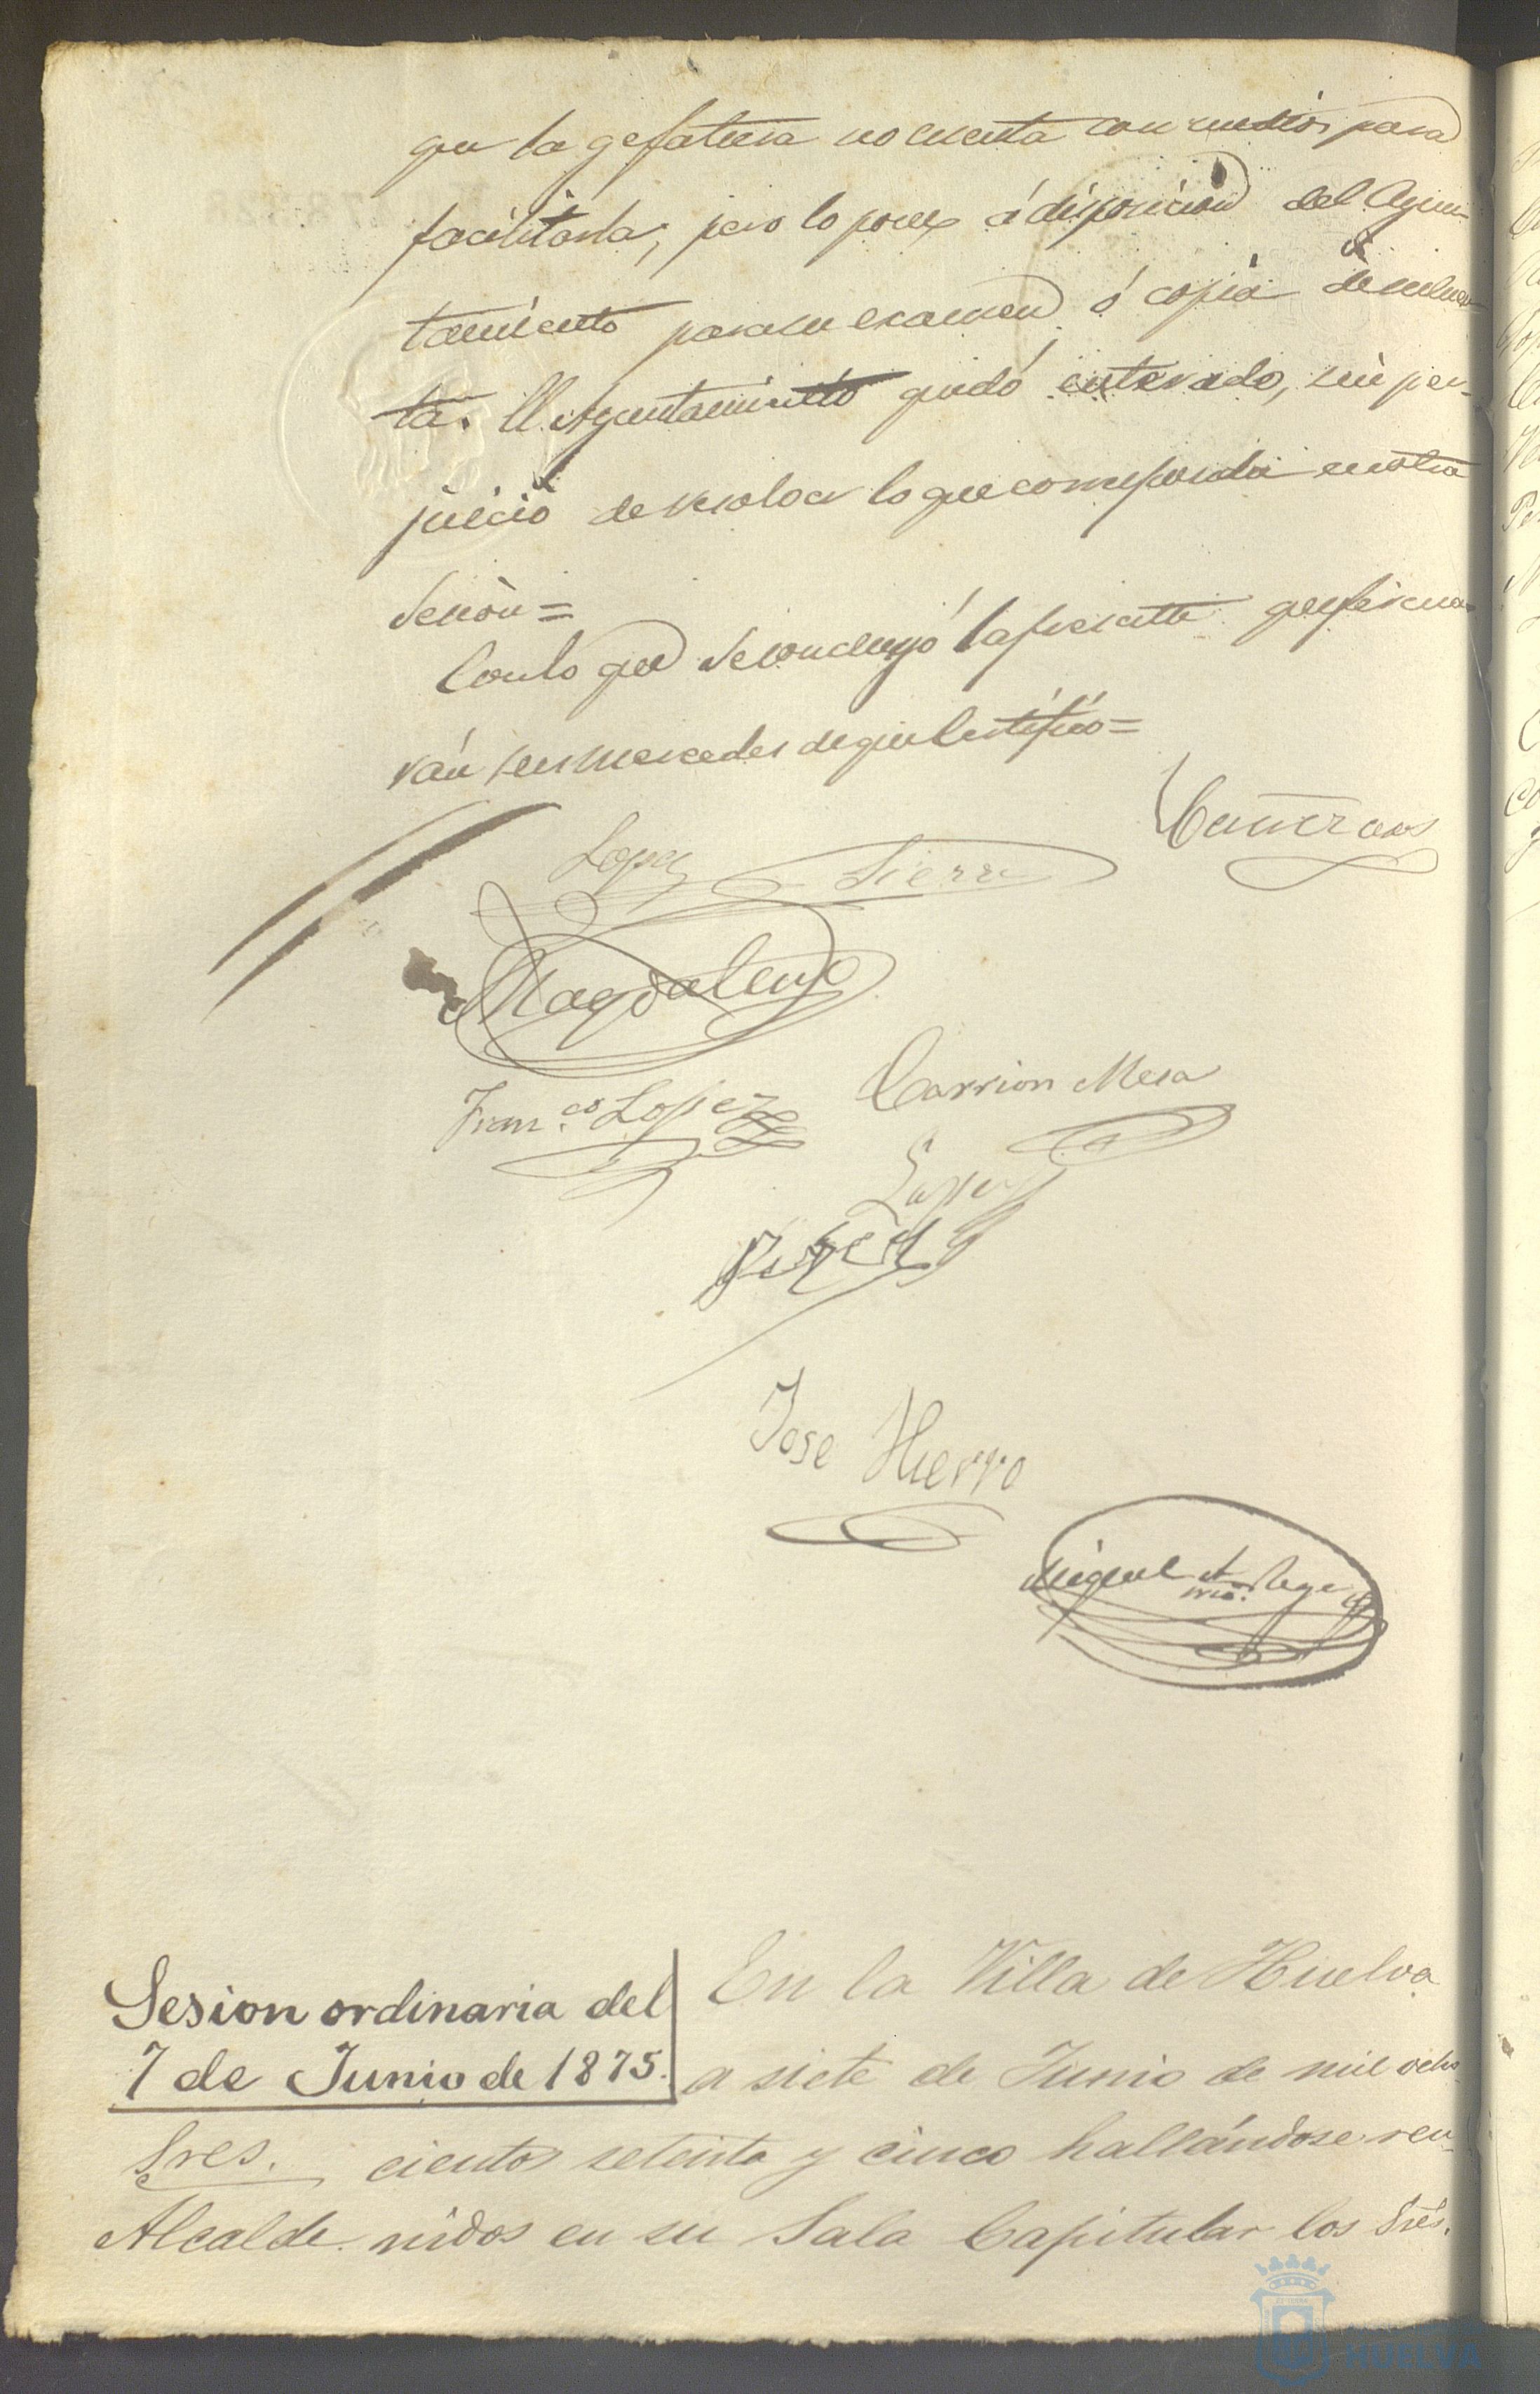 que la gefatura no cuenta con medios para
facilitarla; pero lo pone á disposicion del Ayun-
tamiento para su examen ó copia de su cuen-
ta. El Ayuntamiento quedó enterado, sin per-
juicio de resolver lo que corresponda en otra
Sesion=
Con lo que se concluyó la presente que firma-
rán sus mercedes de que Certifico=
Cañizares
Lopez Sierra
Magdaleno
Fran.co Lopez
Carrion Mesa
Lopez
Jose Hierro
Miguel
Sesion ordinaria del
7 de Junio de 1875.
En la Villa de Huelva
a siete de Junio de mil ocho-
Sres. cientos setenta y cinco hallándose reu-
Alcalde. nidos en su Sala Capitular los Sres.
HUELVA